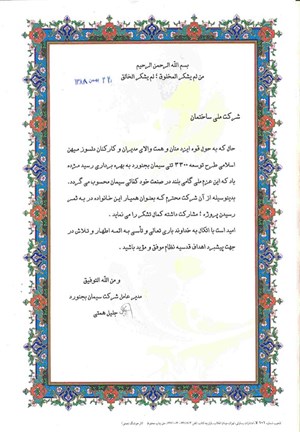 بسم الله الرحمن الرحیم
من لم یشکر المخلوق! لم یشکر الخالق
۲۲ بهمن ۱۳۸۹
شرکت ملی ساختمان
حال که به حول قوه ایزد منان و همت والای مدیران و کارکنان دلسوز میهن
اسلامی طرح توسعه ۳۳۰۰ تنی سیمان بجنورد به بهره برداری رسید مژده
باد که این عزم ملی گامی بلند در صنعت خود کفائی سیمان محسوب می گردد.
بدینوسیله از آن شرکت محترم که بعنوان همیار این خانواده در به ثمر
رسیدن پروژه ! مشارکت داشته کمال تشکر را می نماید .
امید است با اتکال به خداوند باری تعالی و تأسی به ائمه اطهار و تلاش در
جهت پیشبرد اهداف قدسیه نظام موفق و مؤید باشید .
و من الله التوفیق
مدیر عامل شرکت سیمان بجنورد
جلیل همتی